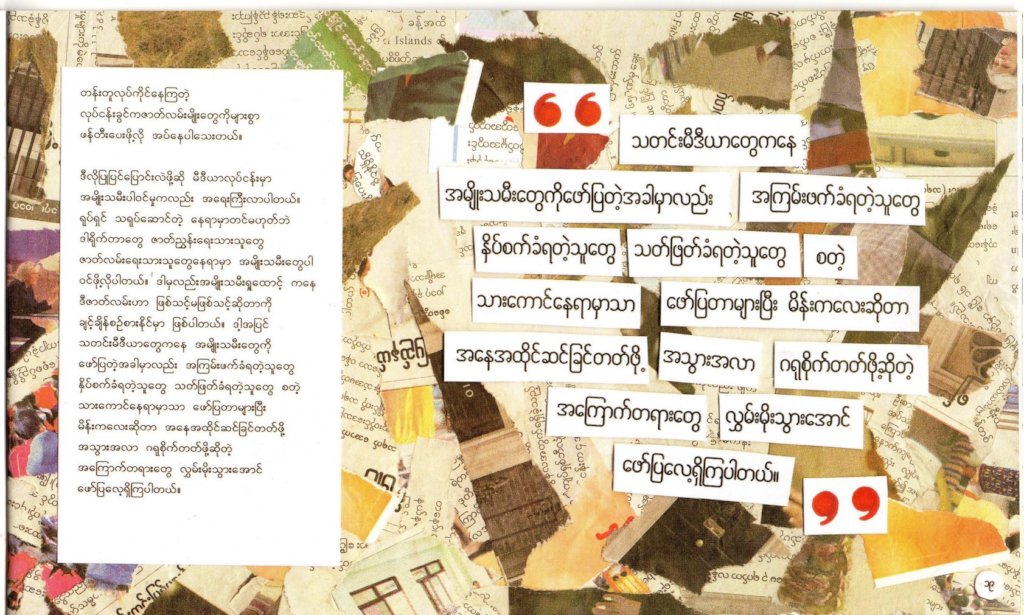 တန်းတူလုပ်ကိုင်နေကြတဲ့
လုပ်ငန်းခွင်ကဇာတ်လမ်းမျိုးတွေကိုများစွာ
ဖန်တီးပေးဖို့လို အပ်နေပါသေးတယ်။
ဒီလိုပြုပြင်ပြောင်းလဲဖို့ဆို မီဒီယာလုပ်ငန်းမှာ
အမျိုးသမီးပါဝင်မှုကလည်း အရေးကြီးလာပါတယ်။
ရုပ်ရှင် သရုပ်ဆောင်တဲ့ နေရာမှာတင်မဟုတ်ဘဲ
ဒါရိုက်တာတွေ ဇာတ်ညွှန်းရေးသားသူတွေ
ဇာတ်လမ်းရေးသားသူတွေနေရာမှာ အမျိုးသမီးတွေပါ
ဝင်ဖို့လိုပါတယ်။ ဒါမှလည်းအမျိုးသမီးရှုထောင့် ကနေ
ဒီဇာတ်လမ်းဟာ ဖြစ်သင့်မဖြစ်သင့်ဆိုတာကို
ချင့်ချိန်စဉ်စားနိုင်မှာ ဖြစ်ပါတယ်။ ဒါ့အပြင်
သတင်းမီဒီယာတွေကနေ အမျိုးသမီးတွေကို
ဖော်ပြတဲ့အခါမှာလည်း အကြမ်းဖက်ခံရတဲ့သူတွေ
နှိပ်စက်ခံရတဲ့သူတွေ သတ်ဖြတ်ခံရတဲ့သူတွေ စတဲ့
သားကောင်နေရာမှာသာ ဖော်ပြတာများပြီး
မိန်းကလေးဆိုတာ အနေအထိုင်ဆင်ခြင်တတ်ဖို့
အသွားအလာ ဂရုစိုက်တတ်ဖို့ဆိုတဲ့
အကြောက်တရားတွေ လွှမ်းမိုးသွားအောင်
ဖော်ပြလေ့ရှိကြပါတယ်။
❝
သတင်းမီဒီယာတွေကနေ
အမျိုးသမီးတွေကိုဖော်ပြတဲ့အခါမှာလည်း အကြမ်းဖက်ခံရတဲ့သူတွေ
နှိပ်စက်ခံရတဲ့သူတွေ သတ်ဖြတ်ခံရတဲ့သူတွေ စတဲ့
သားကောင်နေရာမှာသာ ဖော်ပြတာများပြီး မိန်းကလေးဆိုတာ
အနေအထိုင်ဆင်ခြင်တတ်ဖို့ အသွားအလာ ဂရုစိုက်တတ်ဖို့ဆိုတဲ့
အကြောက်တရားတွေ လွှမ်းမိုးသွားအောင်
ဖော်ပြလေ့ရှိကြပါတယ်။
❞
Islands
၁၉